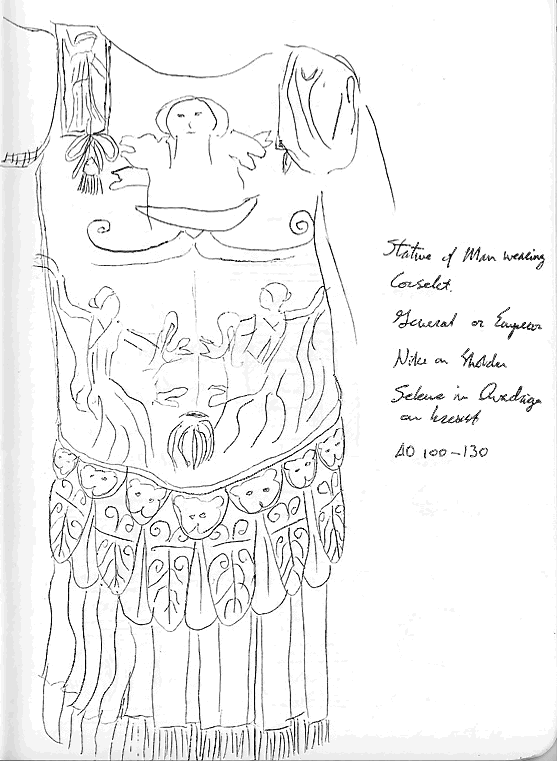 Statue of Man wearing
Corselet.
General or Emperor
Nike on Sholder
Selene in Quadriga
on breast
AD 100-130